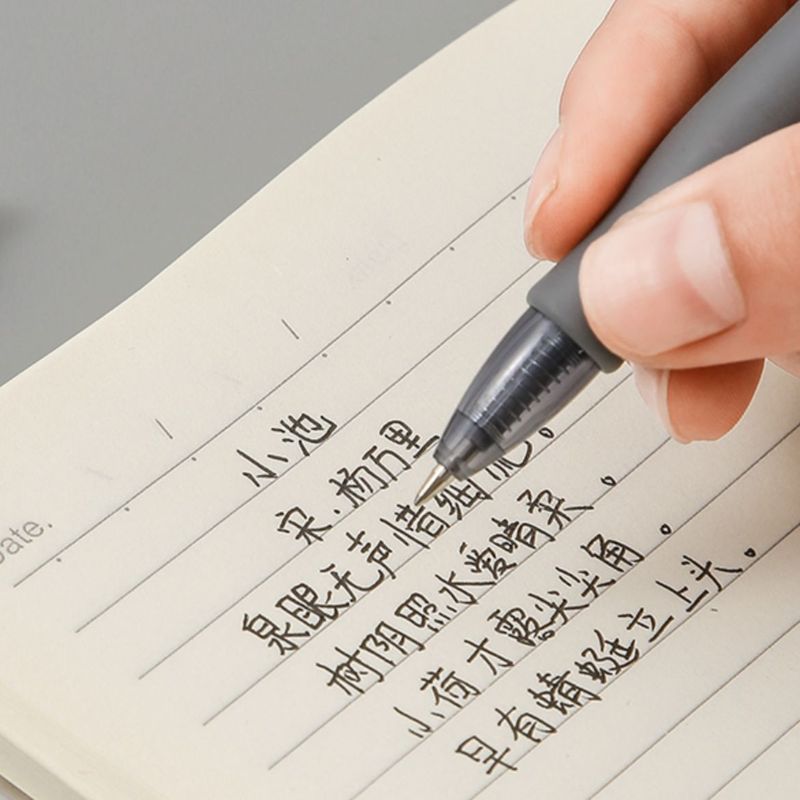 Date.
小池
宋.杨万里
泉眼无声惜细流。
树阴照水爱晴柔。
小荷才露尖尖角。
早有蜻蜓立上头。